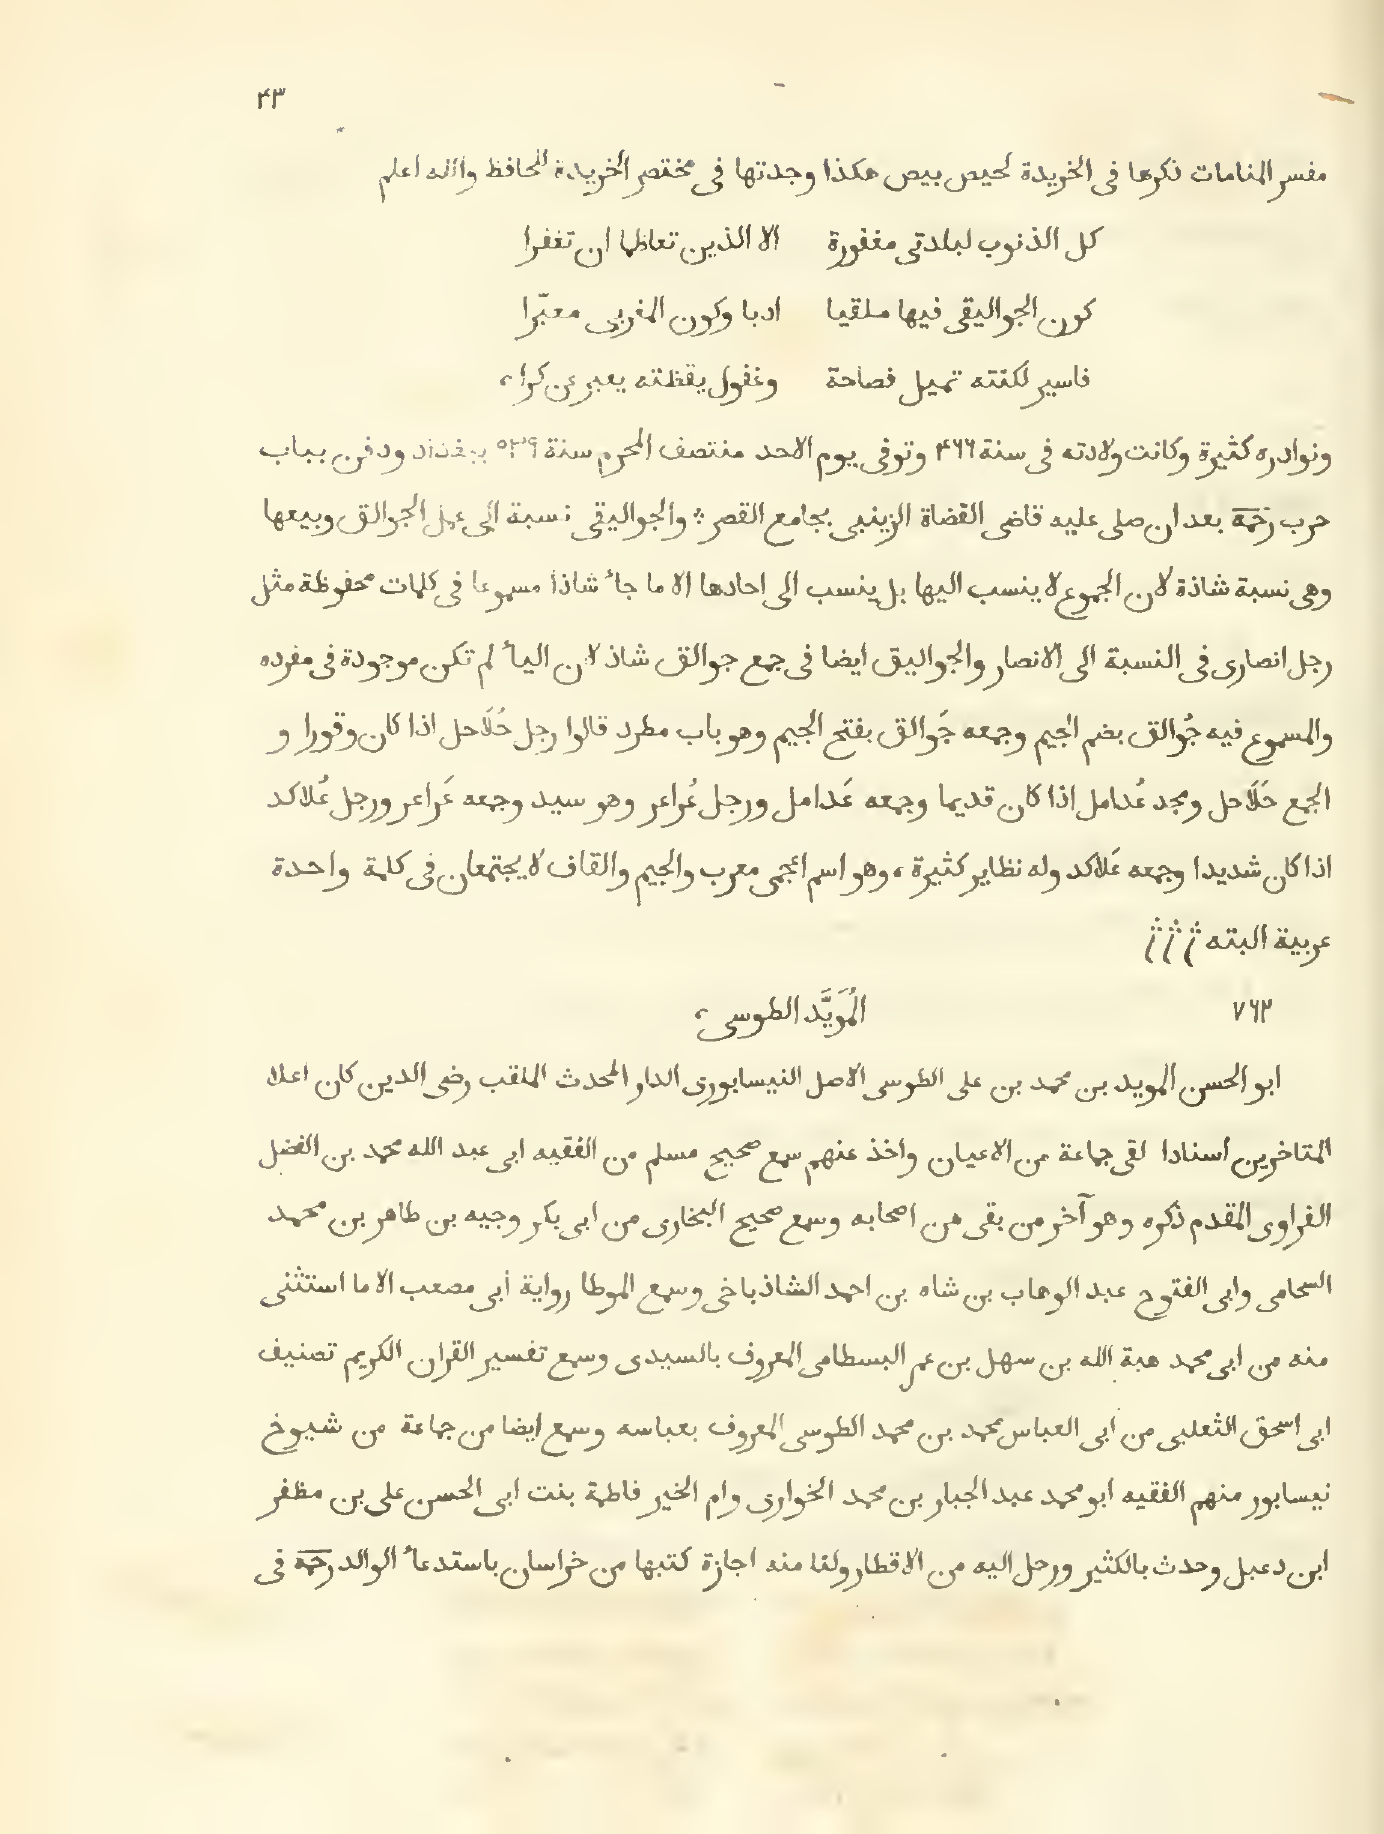 ۴۳
مفسر المنامات ذكرها فى الخريدة لحيص بيص هكذا وجدتها فى مختصر الخريدة للحافظ والله اعلم
كل الذنوب لبلدتى مغفورة الا الذين تعاظما ان تغفرا
كون الجواليقى فيها ملقيا ادبا وكون المغربى معبّرا
فاسير لكنته تميل فصاحة وغفول يقظته يعبر عن كرا،
ونوادره كثيرة وكانت ولادته فى سنة ۴۶۶ وتوفى يوم الاحد منتصف المحرم سنة ۵۳۹ ببغداد ودفن بباب
حرب رَحمَه بعد ان صلى عليه قاضى القضاة الزينبى بجامع القصر ؞ والجواليقى نسبة الى عمل الجوالق وبيعها
وهى نسبة شاذة لان الجموع لا ينسب اليها بل ينسب الى احادها الا ما جاء شاذا مسموعا فى كلمات محفوظة مثل
رجل انصارى فى النسبة الى الانصار والجواليق ايضا فى جمع جوالق شاذ لان الياء لم تكن موجودة فى مفرده
والمسموع فيه جُوالق بضم الجيم وجمعه جَوالق بفتح الجيم وهو باب مطرد قالوا رجل حُلَاحل اذا كان وقورا و
الجمع حَلَاحل ومجد عُدامل اذا كان قديما وجمعه عَدامل ورجل عُراعر وهو سيد وجمعه عَراعر ورجل عُلاكد
اذا كان شديدا وجمعه عَلاكد وله نظاير كثيرة، وهو اسم اعجمى معرب والجيم والقاف لا يجتمعان فى كلمة واحدة
عربية البته
۷۶۳ المُوَيَّد الطوسى،
ابو الحسن المويد بن محمد بن على الطوسى الاصل النيسابورى الدار المحدث الملقب رضى الدين كان اعلا
المتاخرين اسنادا لقى جماعة من الاعيان واخذ عنهم سمع صحيح مسلم من الفقيه ابى عبد الله محمد بن الفضل
الفراوى المقدم ذكره وهو آخر من بقى من اصحابه وسمع صحيح البخارى من ابى بكر وجيه بن طاهر بن محمد
السحامى وابى الفتوح عبد الوهاب بن شاه بن احمد الشاذباخى وسمع الموطا رواية أبى مصعب الا ما استثنى
منه من ابى محمد هبة الله بن سهل بن عمر البسطامى المعروف بالسيدى وسمع تفسير القران الكريم تصنيف
ابى اسحق الثعلبى من ابى العباس محمد بن محمد الطوسى المعروف بعباسه وسمع ايضا من جماعة من شيوخ
نيسابور منهم الفقيه ابو محمد عبد الجبار بن محمد الخوارى وام الخير فاطمة بنت ابى الحسن على بن مظفر
ابن دعبل وحدث بالكثير ورحل اليه من الاقطار ولنا منه اجازة كتبها من خراسان باستدعاء الوالد رحمه فى